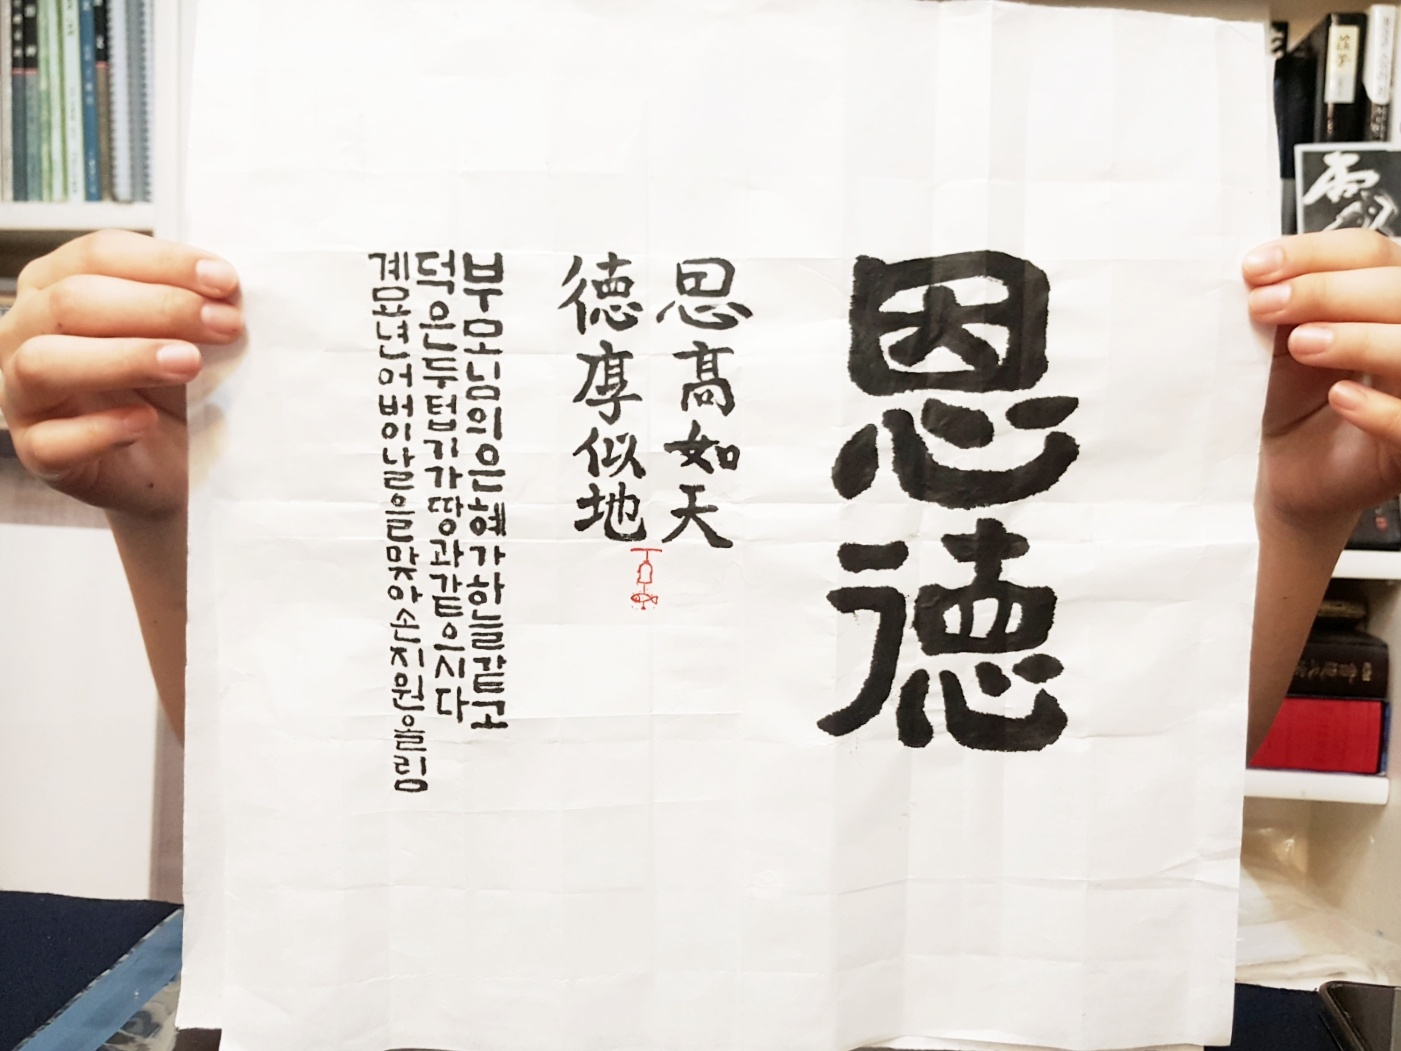 恩德
恩高如天
德厚似地
부모님의은혜가하늘같고
덕은두텁기가땅과같으시다
계묘년어버이날을맞아손지원올림